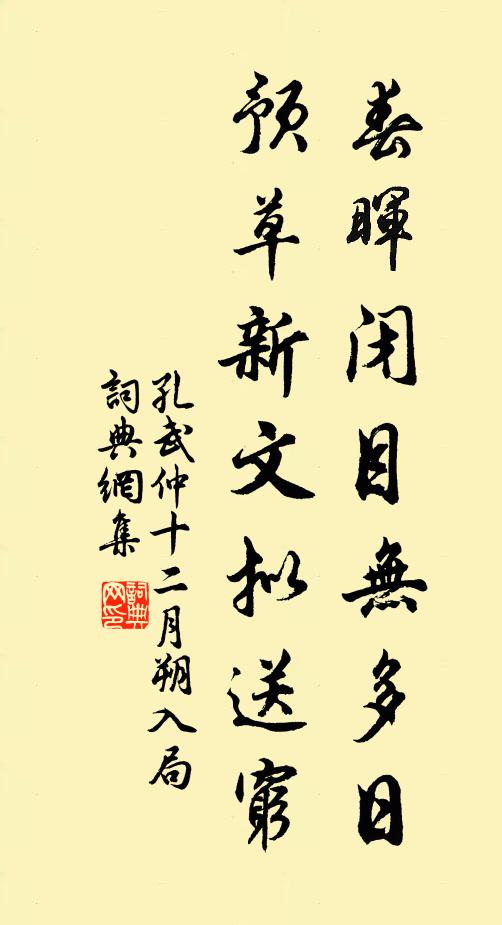 春暉闭目無多日
预草新文拟送窮
孔武仲十二月朔入局
詞典網集
詞典网印